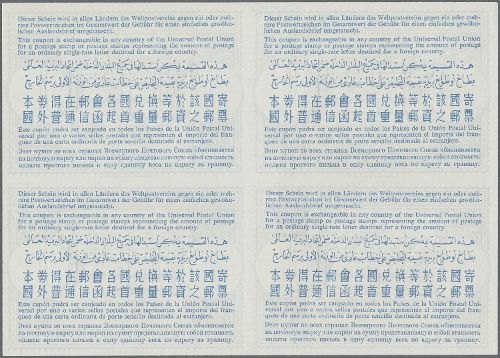 Dieser Schein wird in allen Ländern des Weltpostvereins gegen ein oder meh-
rere Postwertzeichen im Gesamtwert der Gebühr für einen einfachen gewöhn-
lichen Auslandsbrief umgetauscht.
This coupon is exchangeable in any country of the Universal Postal Union
for a postage stamp or postage stamps representing the amount of postage
for an ordinary single-rate letter destined for a foreign country.
هذه القسيمة يمكن استبدالها في جميع اتحاد البريد العالمي
بطابع أو طوابع بريد قيمة التخليص على خطاب عادي من الوزنة الأولى برسم الخارج
本券得在郵會各國兌換等於該國寄
國外普通信函起首重量郵資之郵票
Este cupón podrá ser canjeado en todos los Países de la Unión Postal Uni-
versal por uno o varios sellos postales que representen el importe del fran-
queo de una carta ordinaria de porte sencillo destinada al extranjero.
Этот купон во всех странах Всемирного Почтового Союза обменивается
на почтовую марку или марки на сумму представляющую собой стоимость
оплаты простого письма в одну единицу веса по адресу за границу.
Dieser Schein wird in allen Ländern des Weltpostvereins gegen ein oder meh-
rere Postwertzeichen im Gesamtwert der Gebühr für einen einfachen gewöhn-
lichen Auslandsbrief umgetauscht.
This coupon is exchangeable in any country of the Universal Postal Union
for a postage stamp or postage stamps representing the amount of postage
for an ordinary single-rate letter destined for a foreign country.
هذه القسيمة يمكن استبدالها في جميع اتحاد البريد العالمي
بطابع أو طوابع بريد قيمة التخليص على خطاب عادي من الوزنة الأولى برسم الخارج
本券得在郵會各國兌換等於該國寄
國外普通信函起首重量郵資之郵票
Este cupón podrá ser canjeado en todos los Países de la Unión Postal Uni-
versal por uno o varios sellos postales que representen el importe del fran-
queo de una carta ordinaria de porte sencillo destinada al extranjero.
Этот купон во всех странах Всемирного Почтового Союза обменивается
на почтовую марку или марки на сумму представляющую собой стоимость
оплаты простого письма в одну единицу веса по адресу за границу.
Dieser Schein wird in allen Ländern des Weltpostvereins gegen ein oder meh-
rere Postwertzeichen im Gesamtwert der Gebühr für einen einfachen gewöhn-
lichen Auslandsbrief umgetauscht.
This coupon is exchangeable in any country of the Universal Postal Union
for a postage stamp or postage stamps representing the amount of postage
for an ordinary single-rate letter destined for a foreign country.
هذه القسيمة يمكن استبدالها في جميع اتحاد البريد العالمي
بطابع أو طوابع بريد قيمة التخليص على خطاب عادي من الوزنة الأولى برسم الخارج
本券得在郵會各國兌換等於該國寄
國外普通信函起首重量郵資之郵票
Este cupón podrá ser canjeado en todos los Países de la Unión Postal Uni-
versal por uno o varios sellos postales que representen el importe del fran-
queo de una carta ordinaria de porte sencillo destinada al extranjero.
Этот купон во всех странах Всемирного Почтового Союза обменивается
на почтовую марку или марки на сумму представляющую собой стоимость
оплаты простого письма в одну единицу веса по адресу за границу.
Dieser Schein wird in allen Ländern des Weltpostvereins gegen ein oder meh-
rere Postwertzeichen im Gesamtwert der Gebühr für einen einfachen gewöhn-
lichen Auslandsbrief umgetauscht.
This coupon is exchangeable in any country of the Universal Postal Union
for a postage stamp or postage stamps representing the amount of postage
for an ordinary single-rate letter destined for a foreign country.
هذه القسيمة يمكن استبدالها في جميع اتحاد البريد العالمي
بطابع أو طوابع بريد قيمة التخليص على خطاب عادي من الوزنة الأولى برسم الخارج
本券得在郵會各國兌換等於該國寄
國外普通信函起首重量郵資之郵票
Este cupón podrá ser canjeado en todos los Países de la Unión Postal Uni-
versal por uno o varios sellos postales que representen el importe del fran-
queo de una carta ordinaria de porte sencillo destinada al extranjero.
Этот купон во всех странах Всемирного Почтового Союза обменивается
на почтовую марку или марки на сумму представляющую собой стоимость
оплаты простого письма в одну единицу веса по адресу за границу.